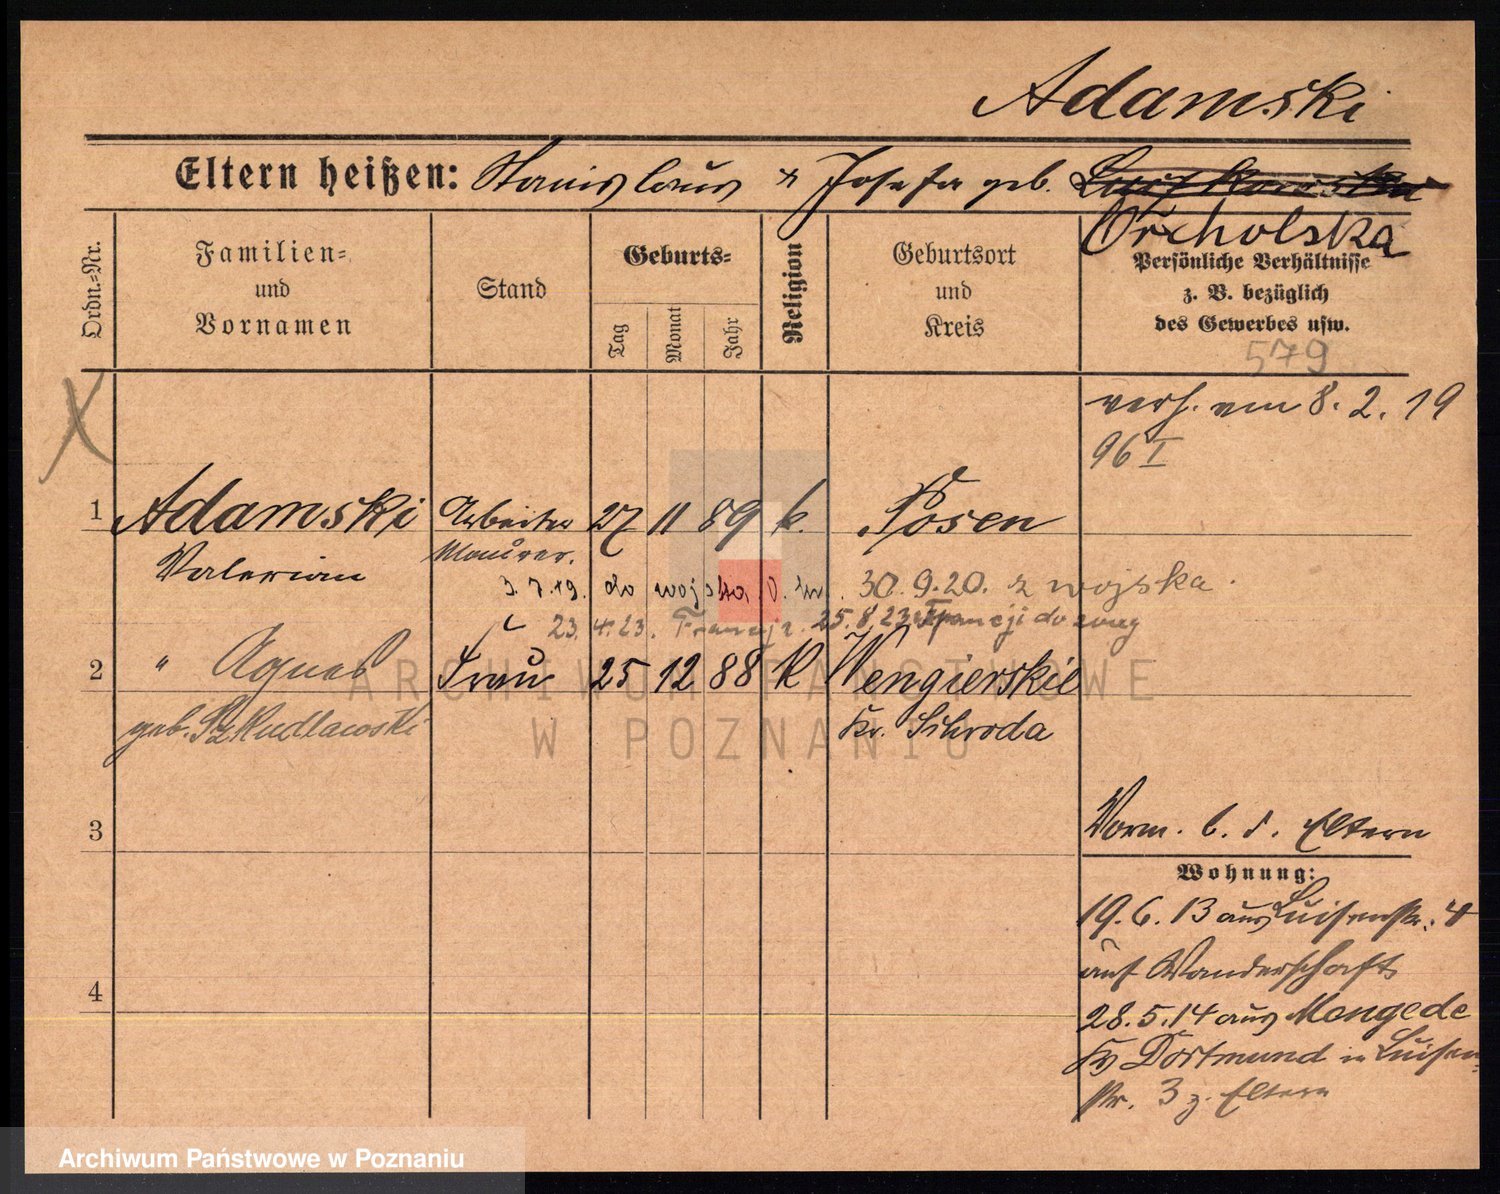 Adamski
Eltern heißen: Stanislaus & Josefa geb.
Orcholska
Ordn.-Nr.
Familien=
und
Vornamen
Stand
Geburts=
Tag
Monat
Jahr
Religion
Geburtsort
und
Kreis
Persönliche Verhältnisse
z. B. bezüglich
des Gewerbes usw.
579
verh. am 8. 2. 19
96 I
1 Adamski Arbeiter 27 11 89 k. Posen
Valerian Maurer.
3. 7. 19. do wojska 30. 9. 20. z wojska.
23. 4. 23. 25. 8. 23 z Francji do
2 " Agnes Frau 25 12 88 K Wengierskie
geb. Szkudlawski Kr. Schroda
3
Vorm. b. d. Eltern
Wohnung:
19. 6. 13 aus Luisenstr. 4
auf Wanderschaft
4
28. 5. 14 aus Mengede
Kr Dortmund in Luisen-
str. 3 z. Eltern
ARCHIWUM PAŃSTWOWE
W POZNANIU
Archiwum Państwowe w Poznaniu